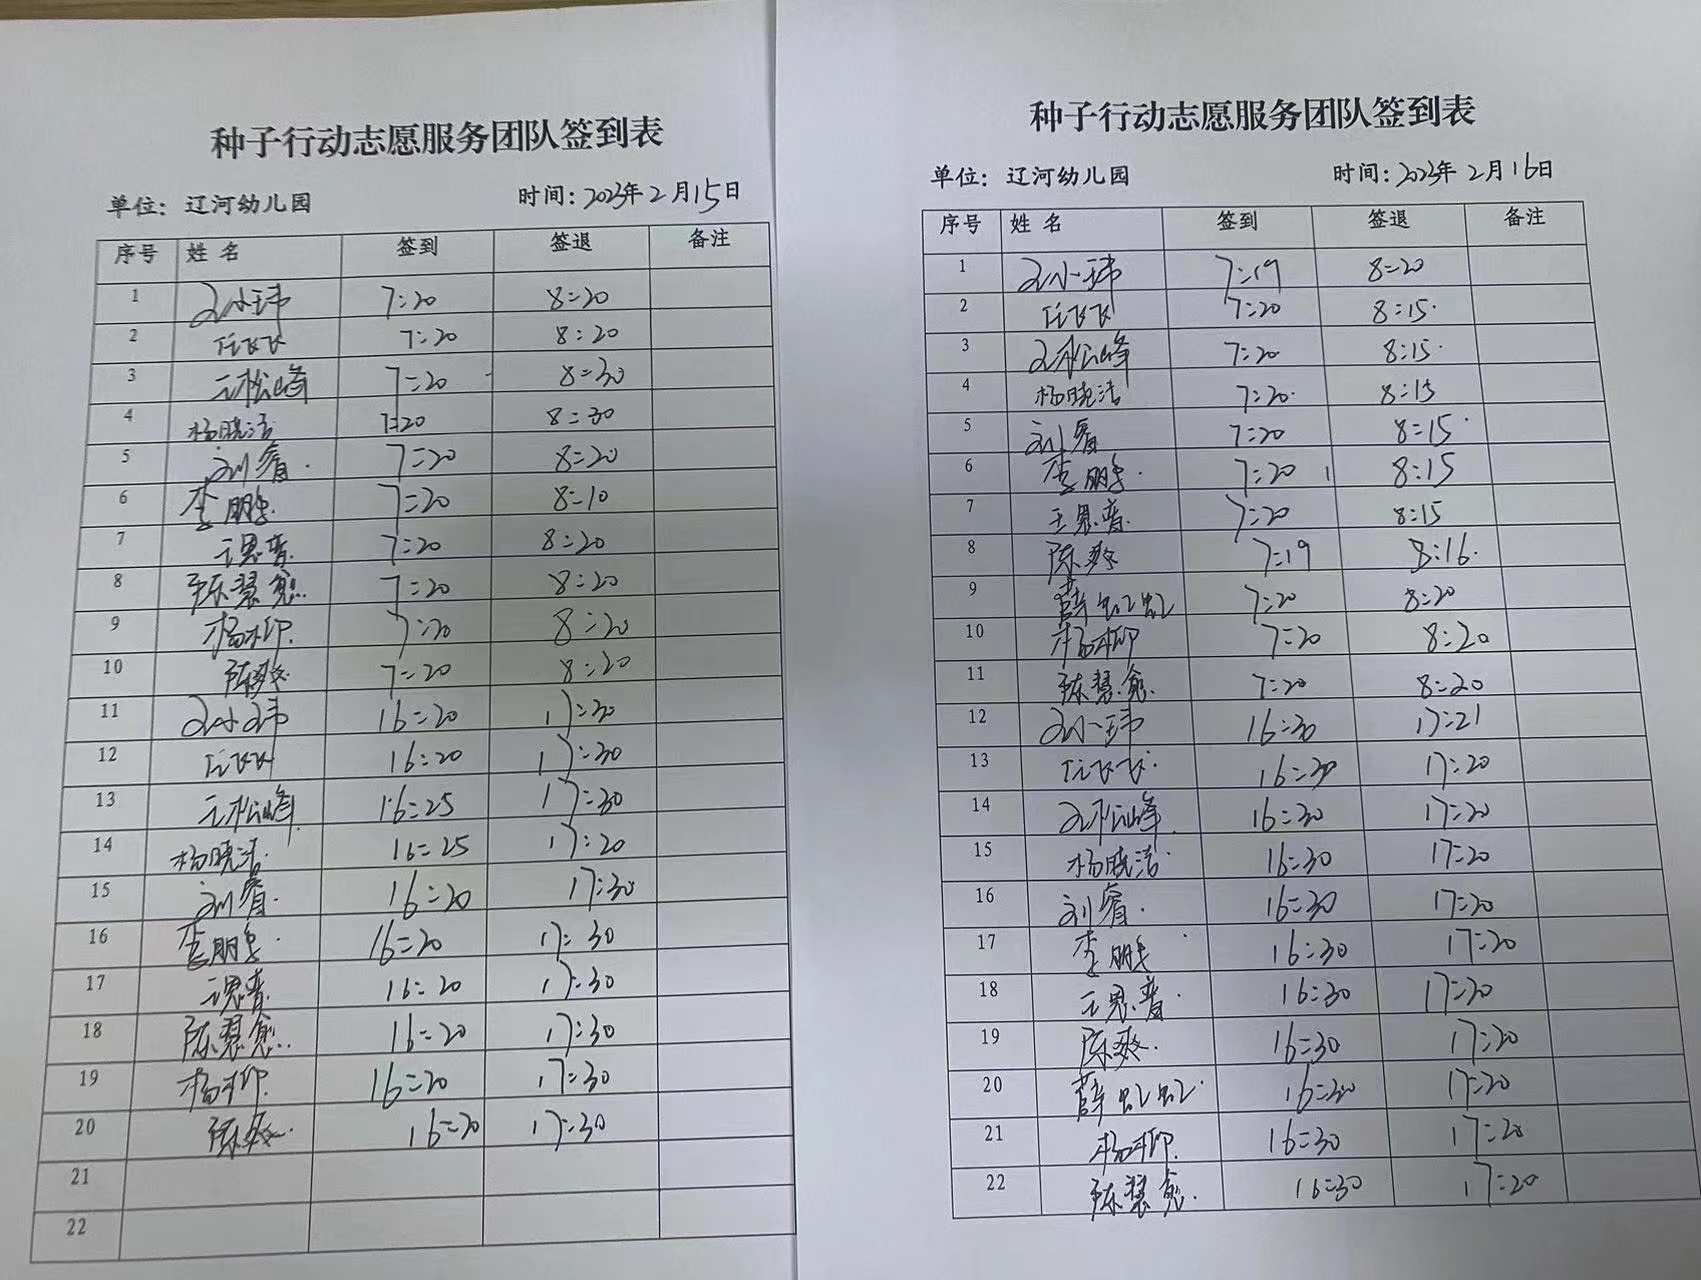 种子行动志愿服务团队签到表
单位：辽河幼儿园 时间：2023年2月15日
序号 姓名 签到 签退 备注
1 7:20 8:20
2 7:20 8:20
3 王松峰 7:20 8:30
4 杨晓洁 7:20 8:30
5 刘睿 7:20 8:20
6 李鹏 7:20 8:10
7 王思普 7:20 8:20
8 陈慧愈 7:20 8:20
9 杨柳 7:20 8:20
10 陈爽 7:20 8:20
11 16:20 17:30
12 16:20 17:30
13 王松峰 16:25 17:30
14 杨晓洁 16:25 17:20
15 刘睿 16:20 17:30
16 李鹏 16:20 17:30
17 王思普 16:20 17:30
18 陈慧愈 16:20 17:30
19 杨柳 16:20 17:30
20 陈爽 16:20 17:30
21
22
种子行动志愿服务团队签到表
单位：辽河幼儿园 时间：2023年2月16日
序号 姓名 签到 签退 备注
1 7:19 8:20
2 7:20 8:15
3 松峰 7:20 8:15
4 杨晓洁 7:20 8:15
5 刘睿 7:20 8:15
6 李鹏 7:20 8:15
7 王思普 7:20 8:15
8 陈爽 7:19 8:16
9 薛虹虹 7:20 8:20
10 杨柳 7:20 8:20
11 陈慧愈 7:20 8:20
12 16:30 17:21
13 16:30 17:20
14 松峰 16:30 17:20
15 杨晓洁 16:30 17:20
16 刘睿 16:30 17:20
17 李鹏 16:30 17:20
18 王思普 16:30 17:20
19 陈爽 16:30 17:20
20 薛虹虹 16:30 17:20
21 杨柳 16:30 17:20
22 陈慧愈 16:30 17:20